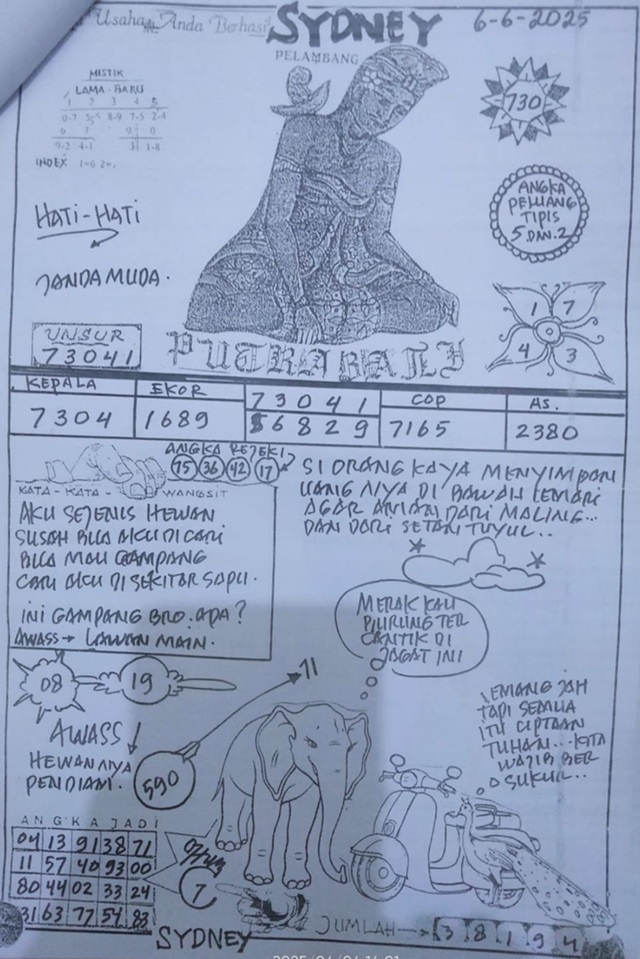 Usaha Anda Berhasil
SYDNEY
6-6-2025
PELAMBANG
MISTIK
LAMA - BARU
1 2 3 4 5
0-7 5-5 8-9 7-5 2-4
6 7 9 0
9-2 4-1 3 1-8
INDEX 1=6 2=
1
730
HATI-HATI
JANDA MUDA.
ANGKA
PELUANG
TIPIS
5 DAN 2
UNSUR
73041
PUTRA BALI
1 7
4 3
KEPALA
7304
EKOR
1689
73041
56829
COP
7165
AS.
2380
ANGKA REJEKI
75 36 42 17
KATA - KATA - WANGSIT
AKU SEJENIS HEWAN
SUSAH BILA AKU DI CARI
BILA MAU GAMPANG
CARI AKU DI SEKITAR SAPU.
INI GAMPANG BRO. ADA?
AWASS → LAWAN MAIN.
SI ORANG KAYA MENYIMPAN
UANG NIYA DI BAWAH LEMARI
AGAR AMAN DARI MALING...
DAN DARI SETAN TUYUL..
MERAK KAU
BURUNG TER
CANTIK DI
JAGAT INI
08 19
11
AWASS!
HEWANNIYA
PENDIAM.
590
EMANG JAH
TAPI SEMUA
ITU CIPTAAN
TUHAN... KITA
WAJIB BER
SUKUR...
ANGKA JADI
04 13 91 38 71
11 57 40 93 00
80 44 02 33 24
31 63 77 54 83
7
JUMLAH → 3 8 1 9 4
SYDNEY